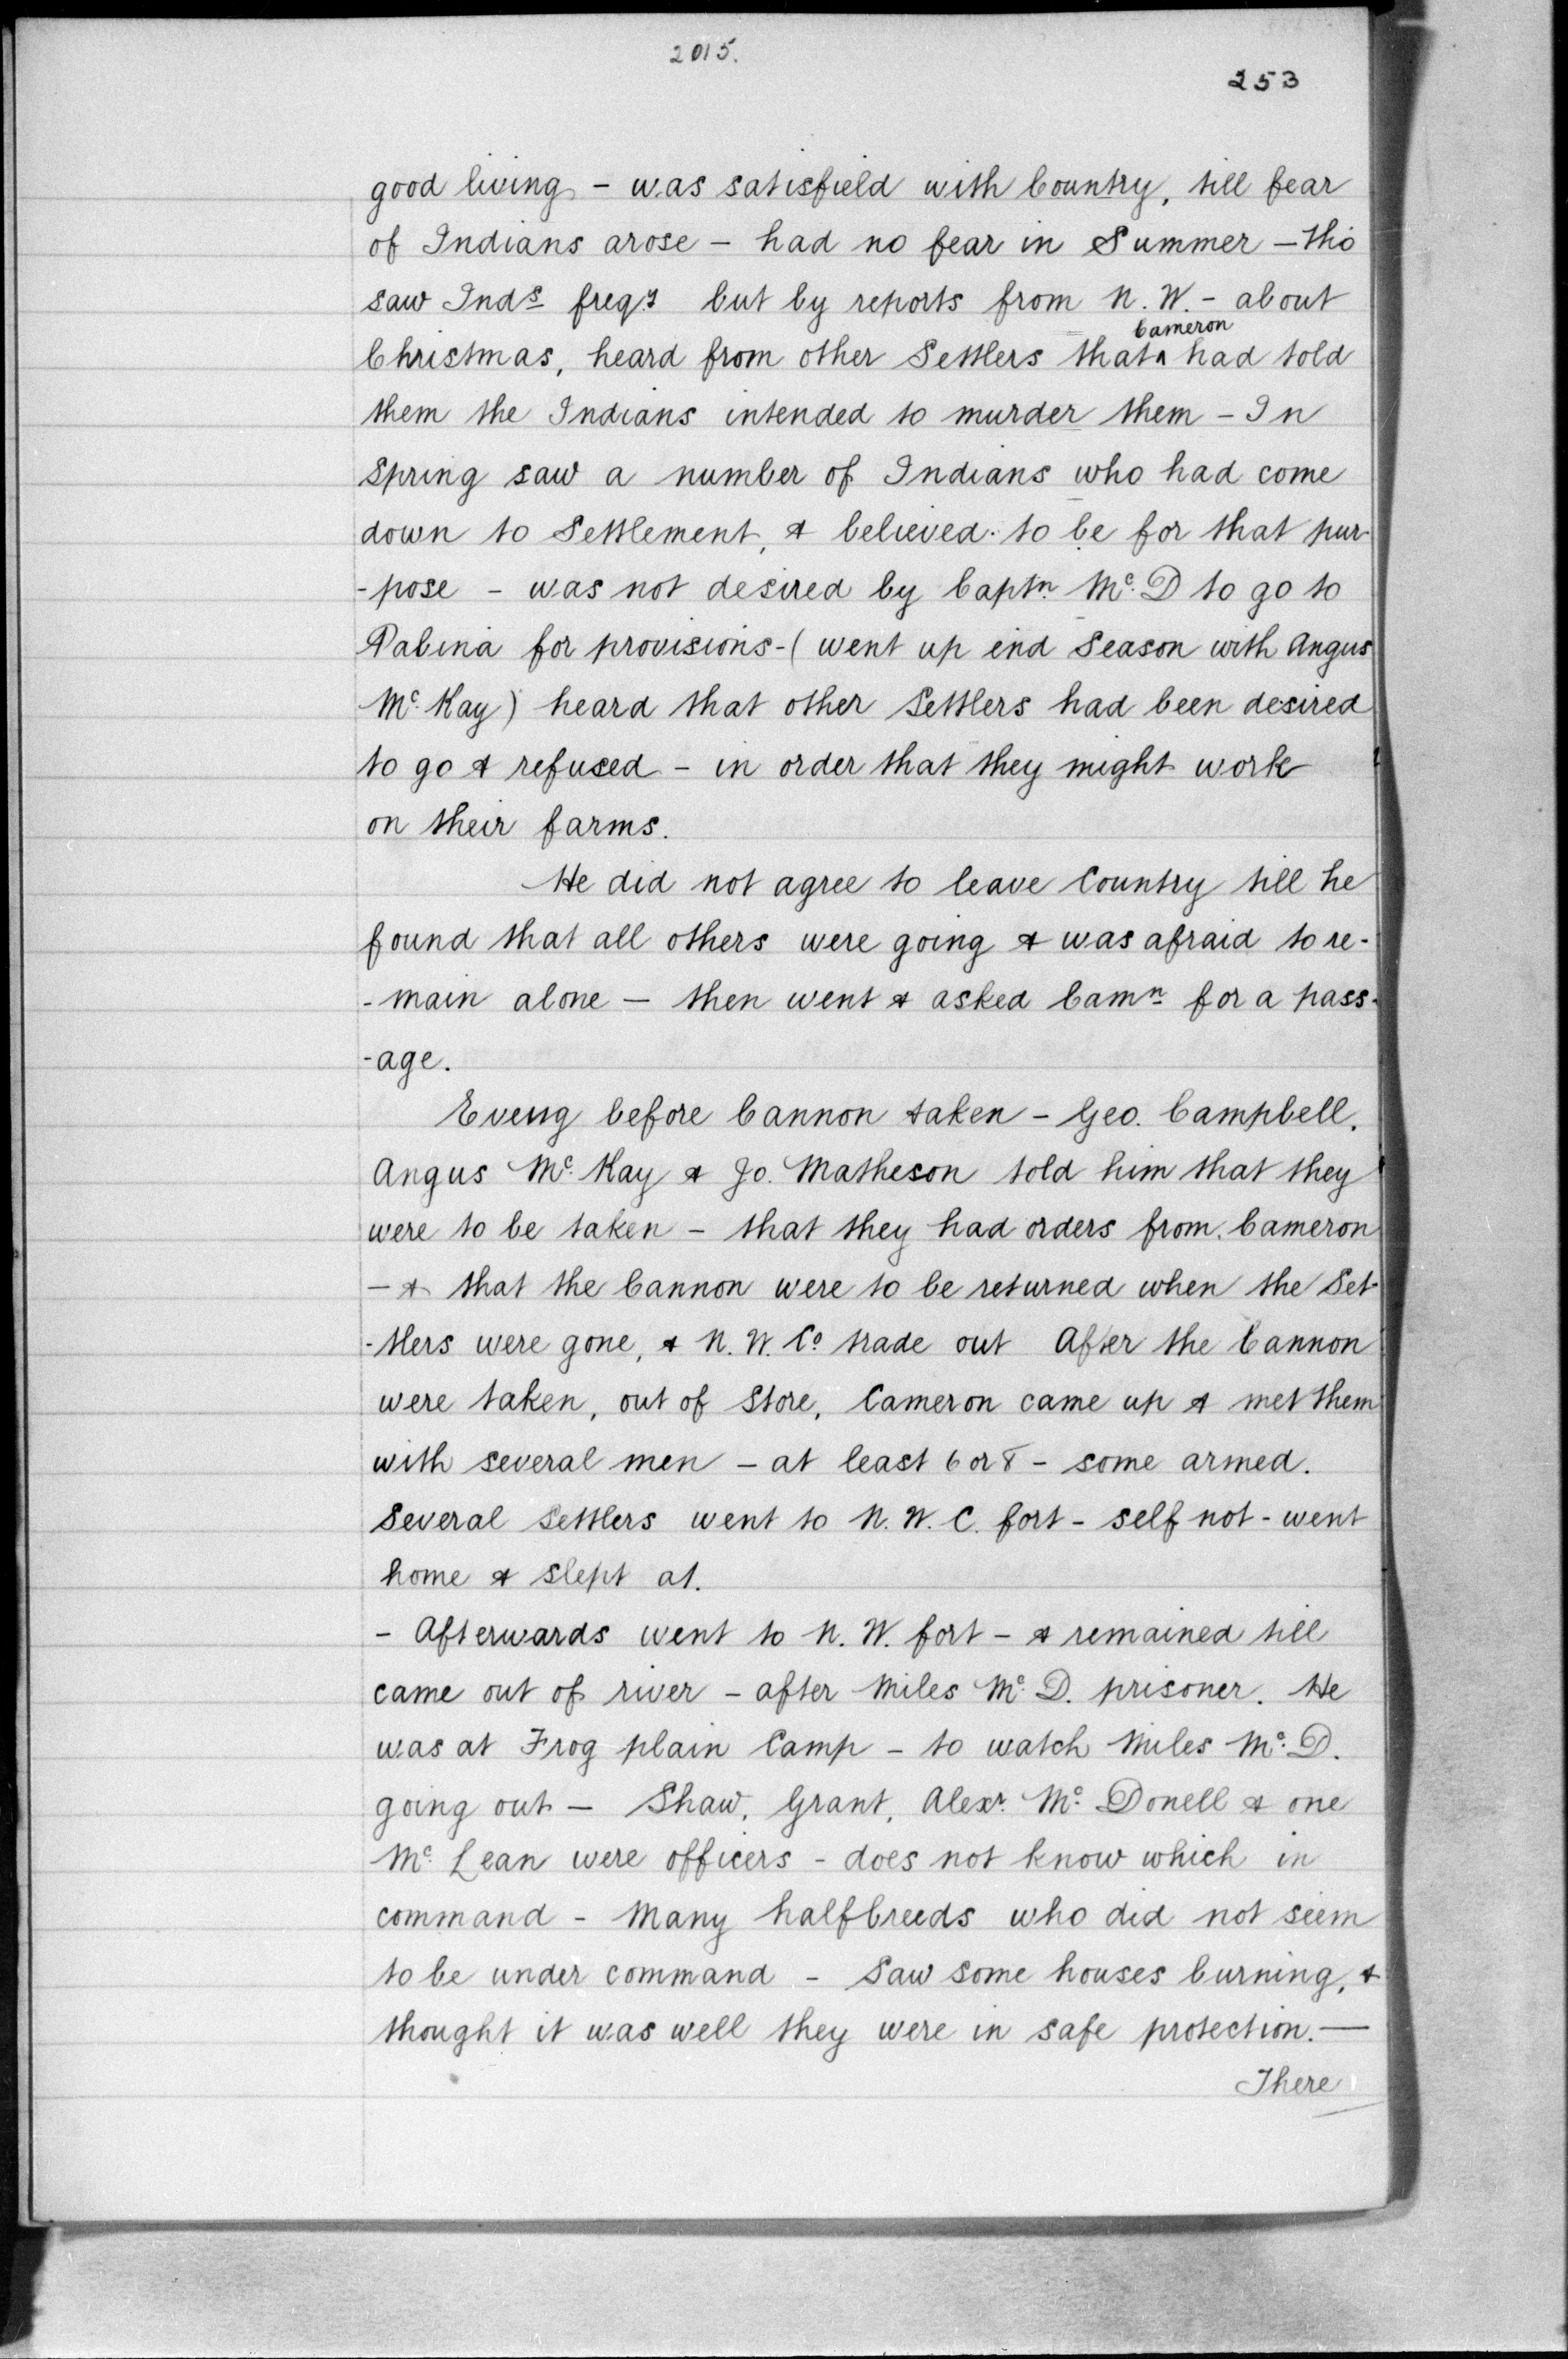 2015.
253
good living - was satisfield with Country, till fear
of Indians arose - had no fear in Summer - tho
saw Inds freqy but by reports from N. W. - about
Cameron
Christmas, heard from other Settlers that ^ had told
them the Indians intended to murder them - In
Spring saw a number of Indians who had come
down to Settlement, & believed to be for that pur-
-pose - was not desired by Captn Mc. D to go to
Pabina for provisions - ( went up end Season with Angus
Mc. Kay) heard that other Settlers had been desired
to go & refused - in order that they might work
on their farms.
He did not agree to leave Country till he
found that all others were going & was afraid to re-
-main alone - then went & asked Camn for a pass-
-age.
Eveng before Cannon taken - Geo. Campbell,
Angus Mc. Kay & Jo. Matheson told him that they
were to be taken - that they had orders from Cameron
- & that the Cannon were to be returned when the Set-
-tlers were gone, & N. W. Co trade out After the Cannon
were taken, out of Store, Cameron came up & met them
with several men - at least 6 or 8 - some armed.
Several Settlers went to N. W. C. fort - self not - went
home & slept at.
- Afterwards went to N. W. fort - & remained till
came out of river - after Miles Mc. D. prisoner. He
was at Frog plain Camp - to watch Miles Mc. D.
going out - Shaw, Grant, Alexr. Mc. Donell & one
Mc. Lean were officers - does not know which in
command - Many halfbreeds who did not seem
to be under command - Saw some houses burning, &
thought it was well they were in safe protection. -
There